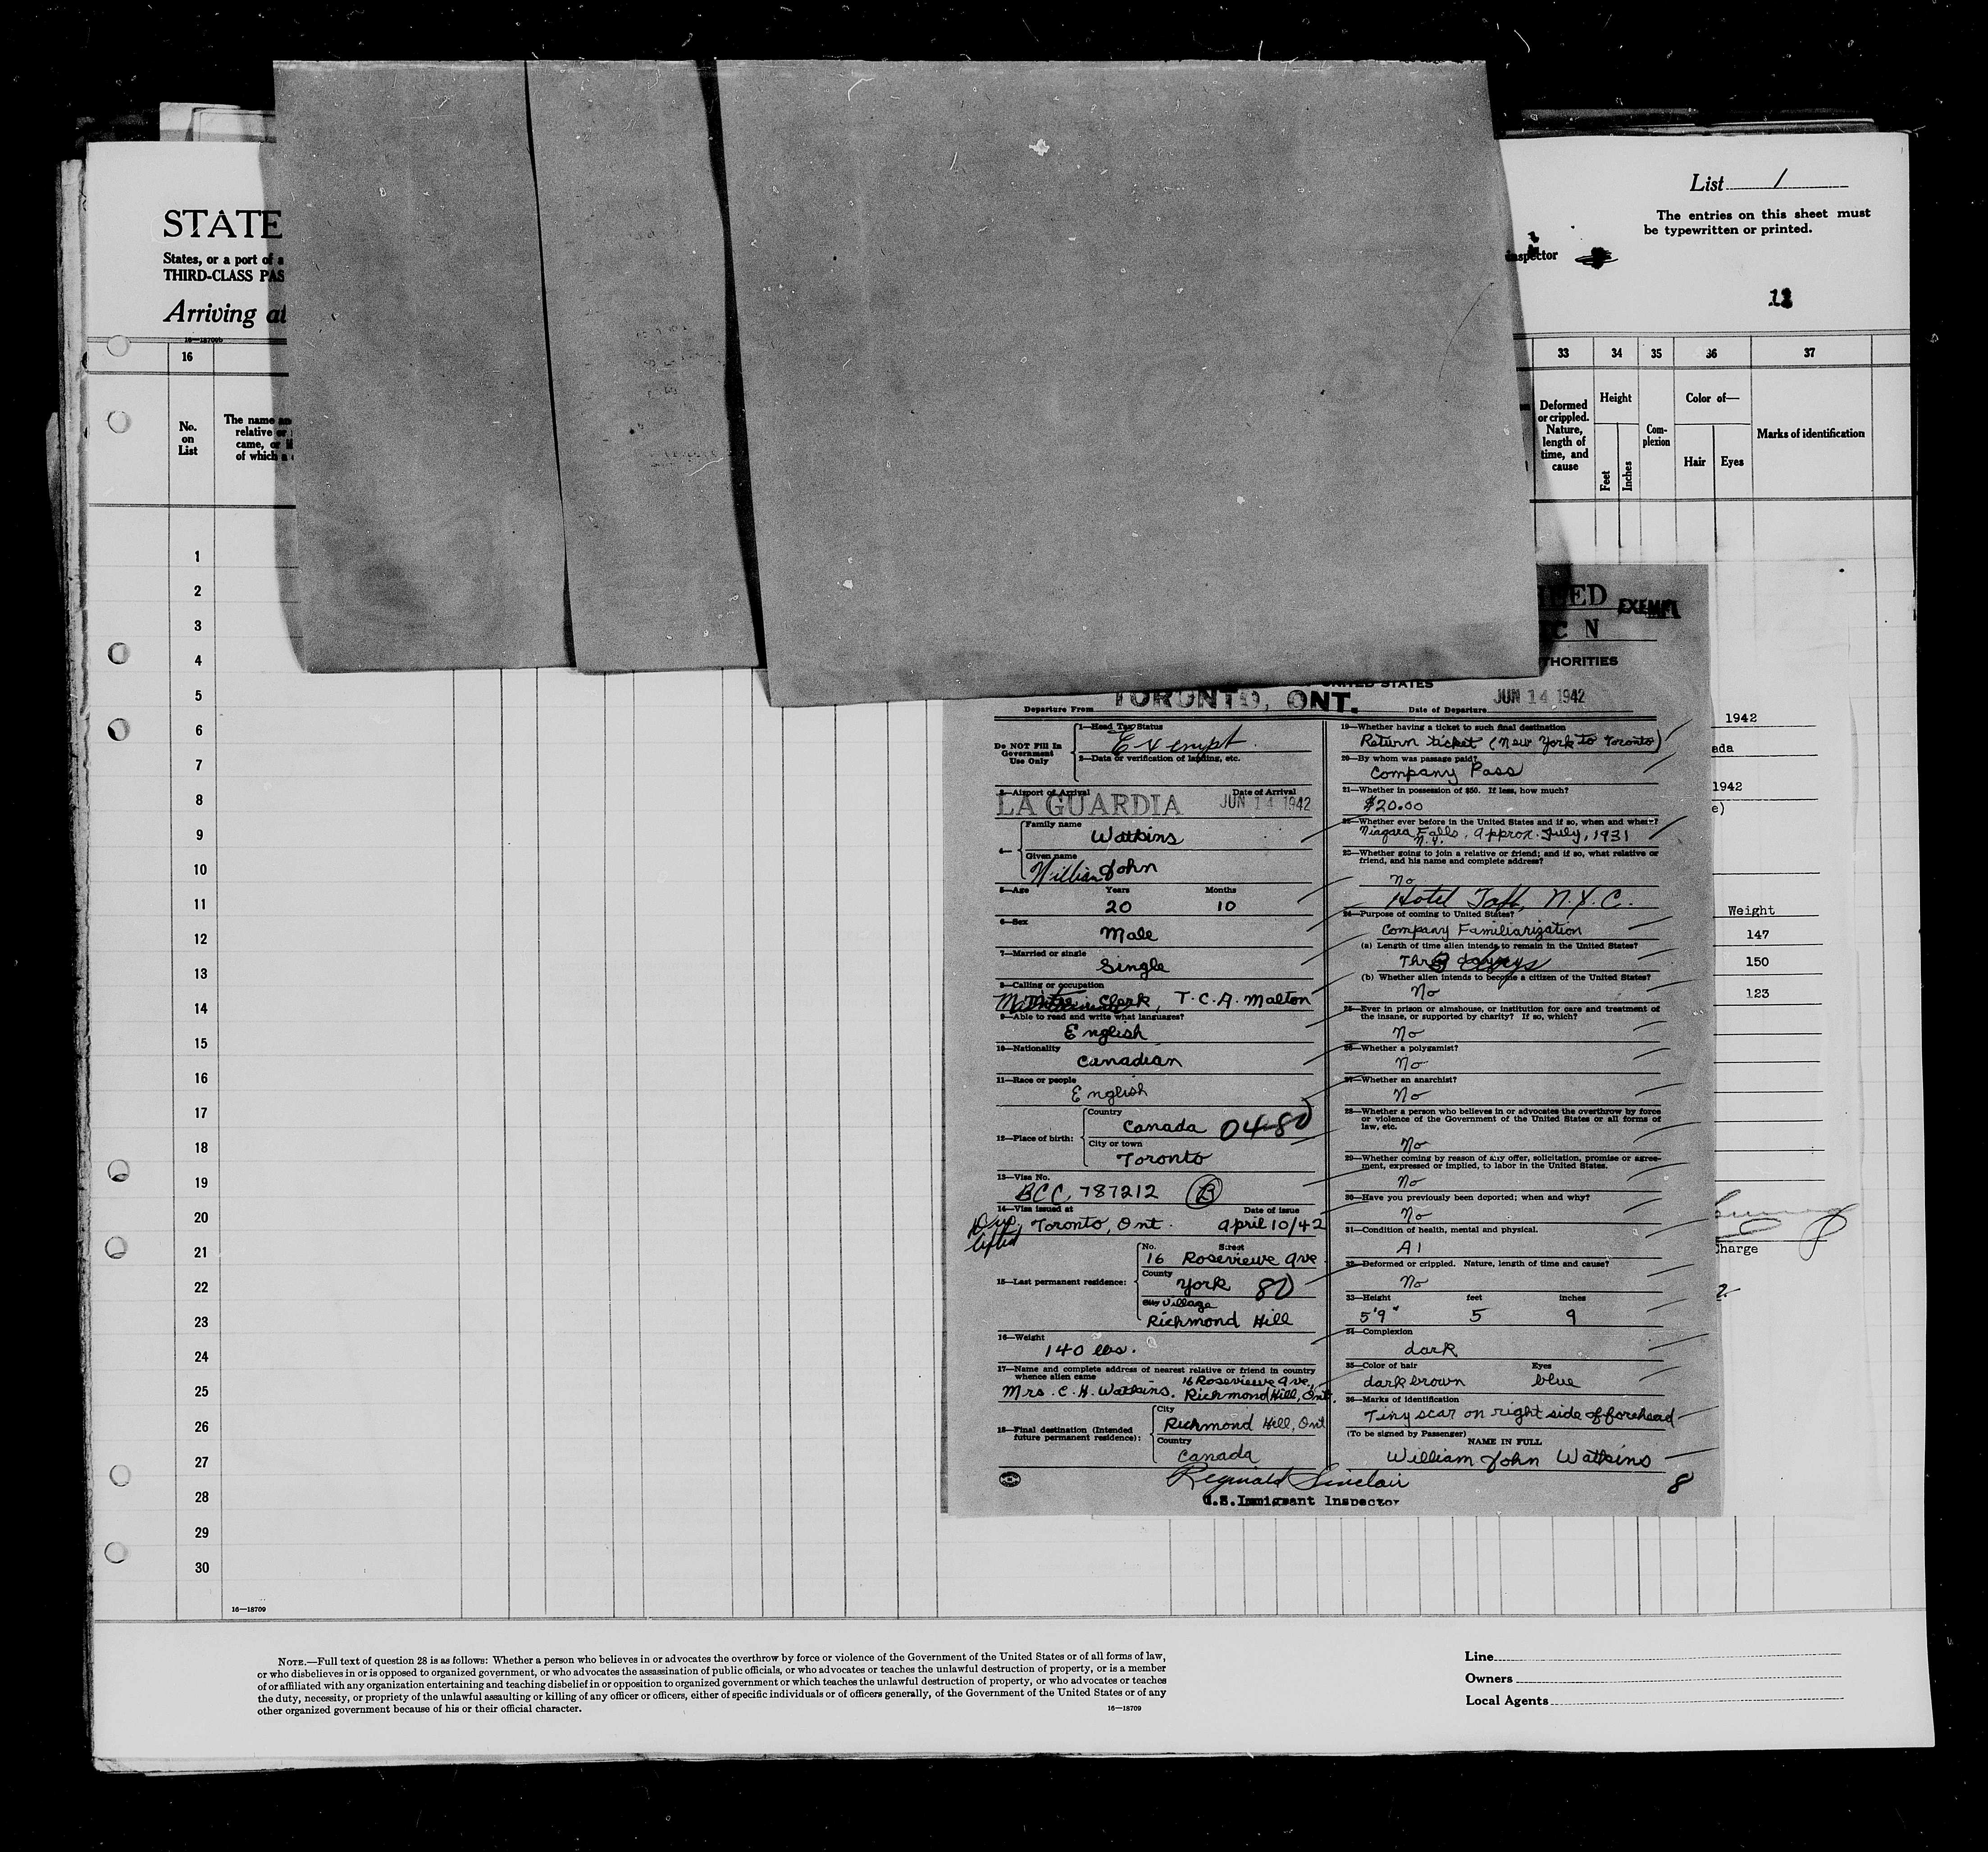 List 1
The entries on this sheet must
be typewritten or printed.
STATE
States, or a port of a
THIRD-CLASS PAS
Arriving at
16—18709b
16
No.
on
List
The name an
relative or
came, or
of which a
33
34
35
36
37
Deformed
or crippled.
Nature,
length of
time, and
cause
Height
Feet
Inches
Com-
plexion
Color of—
Hair
Eyes
Marks of identification
1
2
3
4
5
6
7
8
9
10
11
12
13
14
15
16
17
18
19
20
21
22
23
24
25
26
27
28
29
30
EXEMPT
THORITIES
UNITED STATES
Departure From TORONTO, ONT.
Date of Departure JUN 14 1942
Do NOT Fill In
Government
Use Only
1—Head Tax Status
Exempt
2—Data or verification of landing, etc.
3—Airport of Arrival
Date of Arrival
LA GUARDIA JUN 14 1942
4—
Family name
Watkins
Given name
William John
5—Age Years Months
20 10
6—Sex
Male
7—Married or single
Single
8—Calling or occupation
Clerk, T.C.A. Malton
9—Able to read and write what languages?
English
10—Nationality
Canadian
11—Race or people
English
12—Place of birth:
Country
Canada 04-80
City or town
Toronto
13—Visa No.
BCC 787212 B
14—Visa issued at Date of issue
Toronto, Ont. April 10/42
15—Last permanent residence:
No. Street
16 Roseviewe Ave
County
York 80
City Village
Richmond Hill
16—Weight
140 lbs.
17—Name and complete address of nearest relative or friend in country
whence alien came
16 Roseviewe Ave.,
Mrs. C. H. Watkins. Richmond Hill, Ont.
18—Final destination (Intended
future permanent residence):
City
Richmond Hill, Ont
Country
Canada
Reginald Sinclair
U.S. Immigrant Inspector
19—Whether having a ticket to such final destination
Return ticket (New York to Toronto)
20—By whom was passage paid?
Company Pass
21—Whether in possession of $50. If less, how much?
$20.00
22—Whether ever before in the United States and if so, when and where?
Niagara Falls, approx. July, 1931
N.Y.
23—Whether going to join a relative or friend; and if so, what relative or
friend, and his name and complete address?
No
Hotel Taft, N.Y.C.
24—Purpose of coming to United States?
Company Familiarization
(a) Length of time alien intends to remain in the United States?
3 days
(b) Whether alien intends to become a citizen of the United States?
No
25—Ever in prison or almshouse, or institution for care and treatment of
the insane, or supported by charity? If so, which?
No
26—Whether a polygamist?
No
27—Whether an anarchist?
No
28—Whether a person who believes in or advocates the overthrow by force
or violence of the Government of the United States or all forms of
law, etc.
No
29—Whether coming by reason of any offer, solicitation, promise or agree-
ment, expressed or implied, to labor in the United States.
No
30—Have you previously been deported; when and why?
No
31—Condition of health, mental and physical.
A1
32—Deformed or crippled. Nature, length of time and cause?
No
33—Height feet inches
5'9" 5 9
34—Complexion
dark
35—Color of hair Eyes
dark brown blue
36—Marks of identification
Tiny scar on right side of forehead
(To be signed by Passenger)
NAME IN FULL
William John Watkins
8
1942
ada
1942
e)
Weight
147
150
123
Charge
16—18709
NOTE.—Full text of question 28 is as follows: Whether a person who believes in or advocates the overthrow by force or violence of the Government of the United States or of all forms of law,
or who disbelieves in or is opposed to organized government, or who advocates the assassination of public officials, or who advocates or teaches the unlawful destruction of property, or is a member
of or affiliated with any organization entertaining and teaching disbelief in or opposition to organized government or which teaches the unlawful destruction of property, or who advocates or teaches
the duty, necessity, or propriety of the unlawful assaulting or killing of any officer or officers, either of specific individuals or of officers generally, of the Government of the United States or of any
other organized government because of his or their official character.
16—18709
Line
Owners
Local Agents